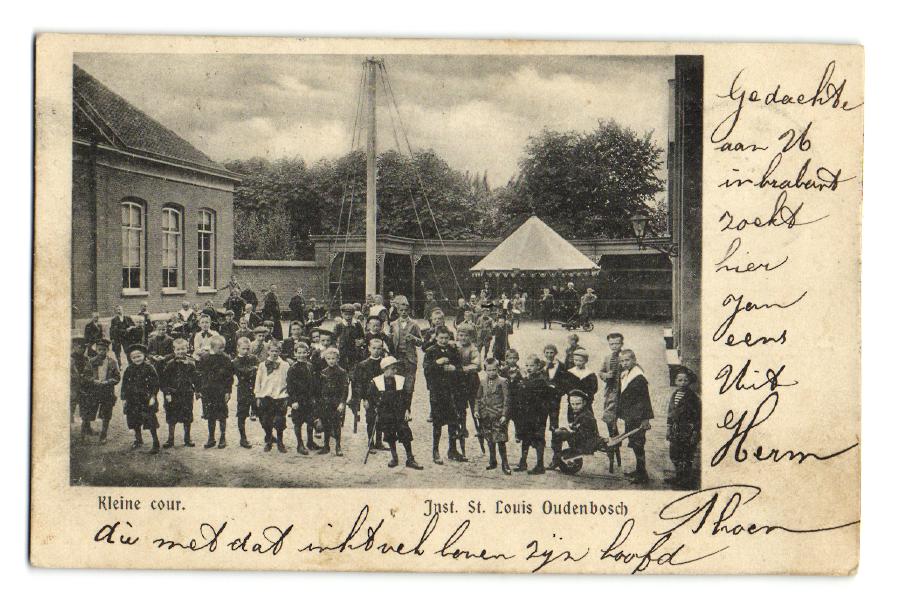 Gedachte
aan U
in brabant
zoekt
hier
Jan
eens
Uit
Herm
Phoen
Kleine cour.
Inst. St. Louis Oudenbosch
die met dat inktvek boven zijn hoofd